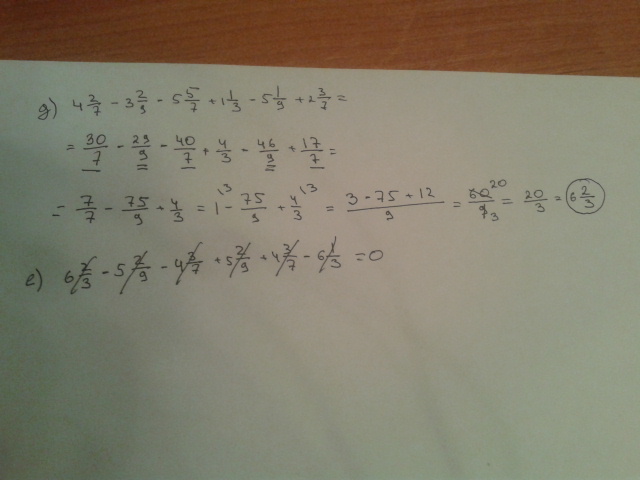 д) 4 2/7 - 3 2/9 - 5 5/7 + 1 1/3 - 5 1/9 + 2 3/7 =
= 30/7 - 29/9 - 40/7 + 4/3 - 46/9 + 17/7 =
= 7/7 - 75/9 + 4/3 = 1\3 - 75/9 + 4/3\3 = (3 - 75 + 12)/9 = 60/9 20/3 = 20/3 = 6 2/3
е) 6 2/3 - 5 2/9 - 4 3/7 + 5 2/9 + 4 3/7 - 6 1/3 = 0